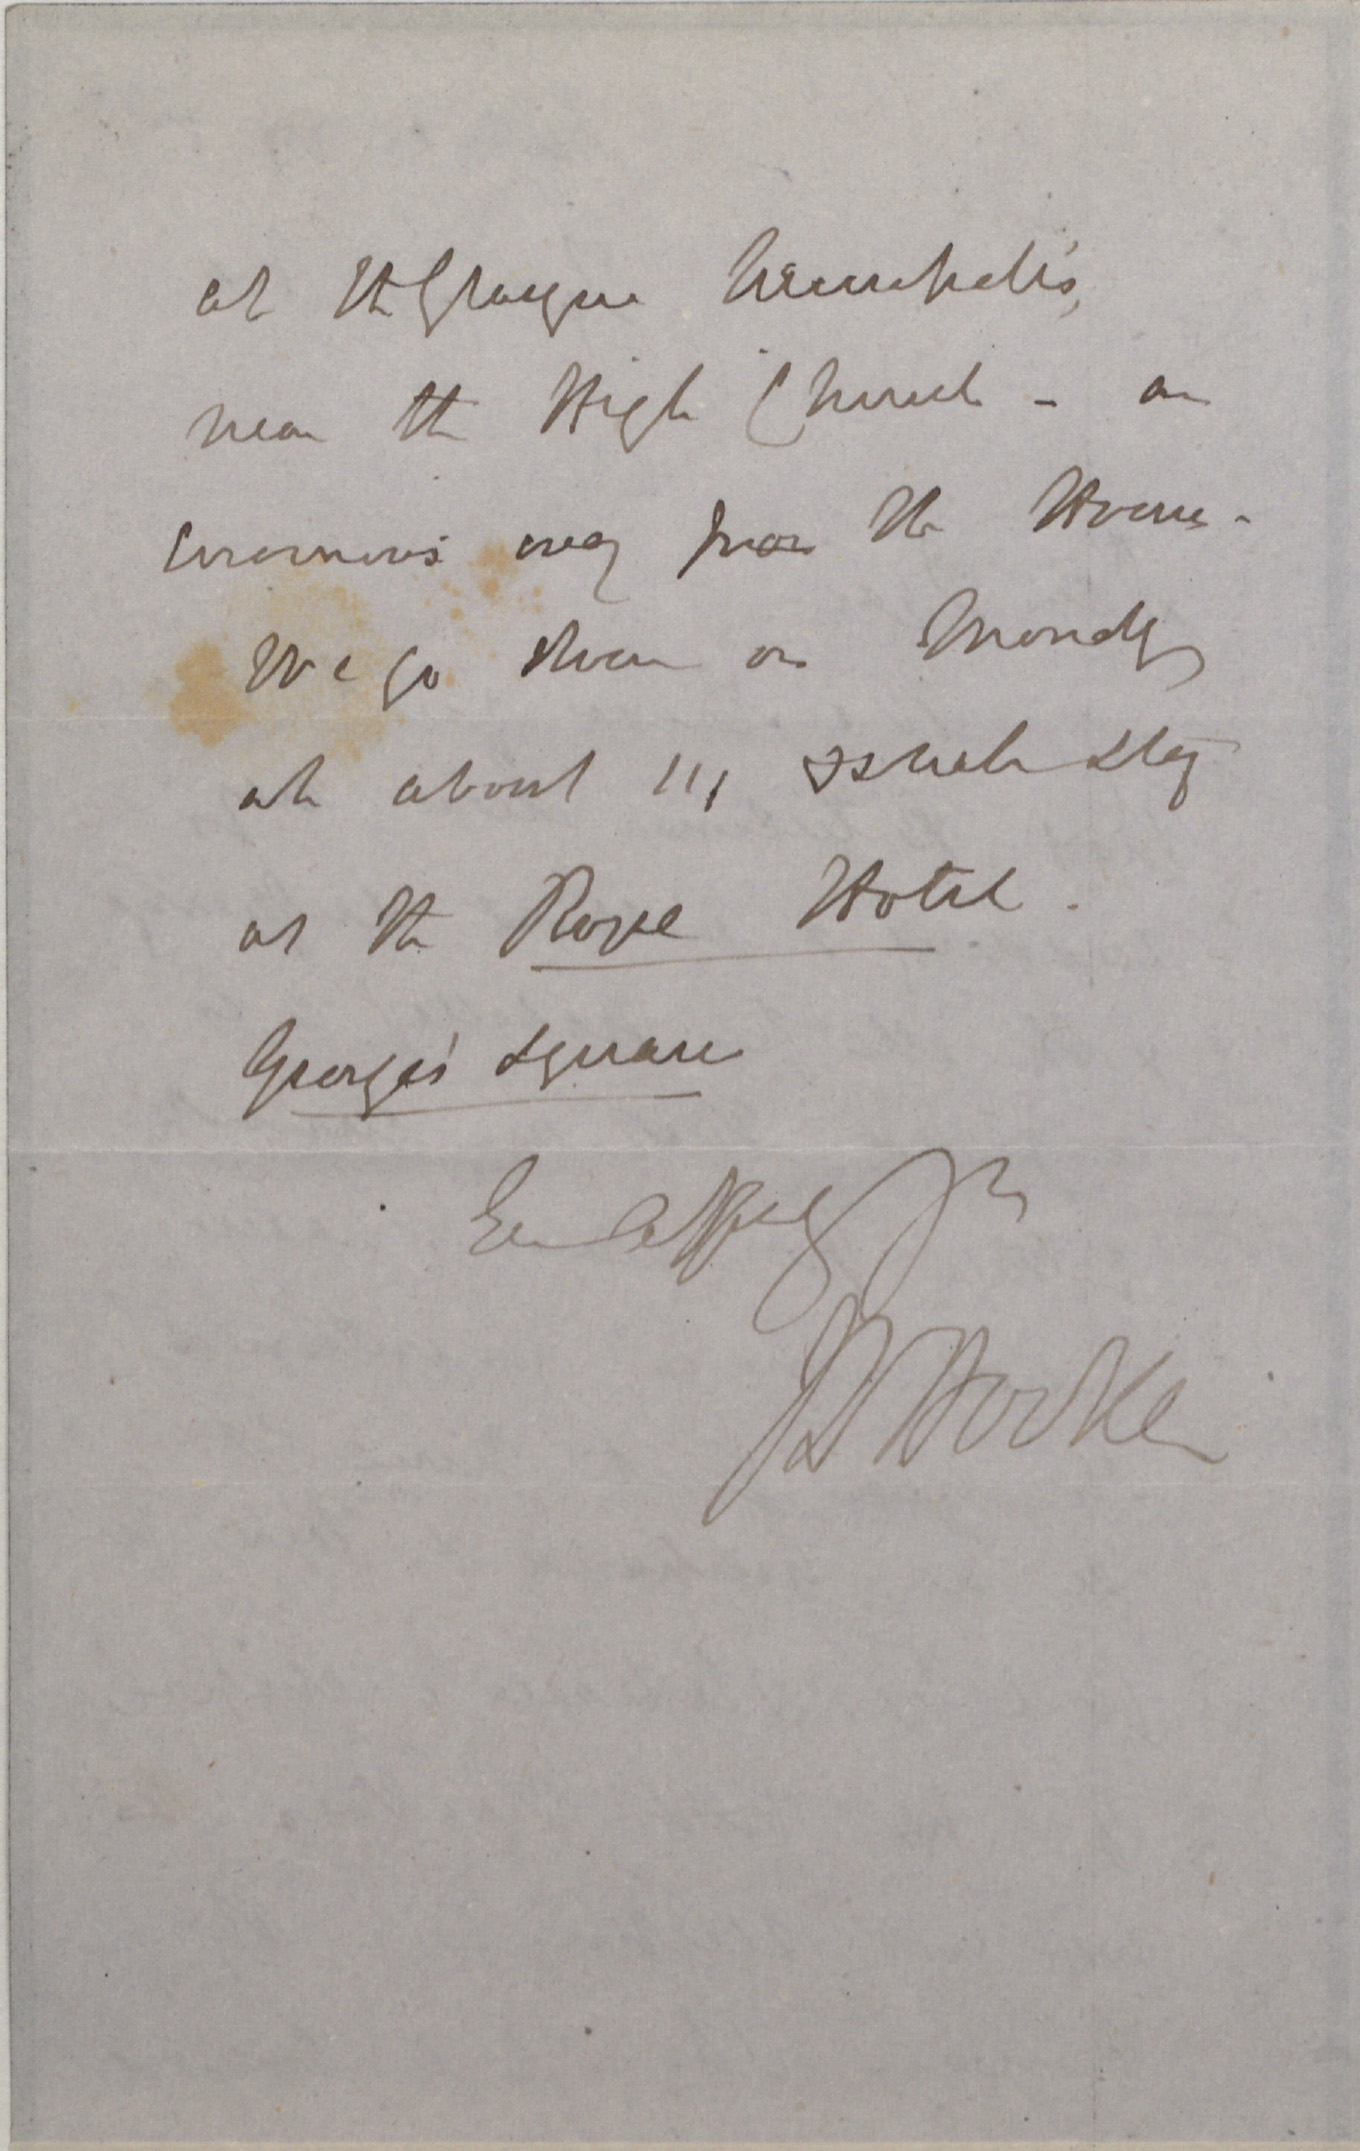 at the Glasgow Necropolis,
near the High Church - an
enormous way from the House.
We go down on Monday
at about 11, & shall stay
at the Royal Hotel.
George's Square
Ever affecy Yrs
JD Hooker